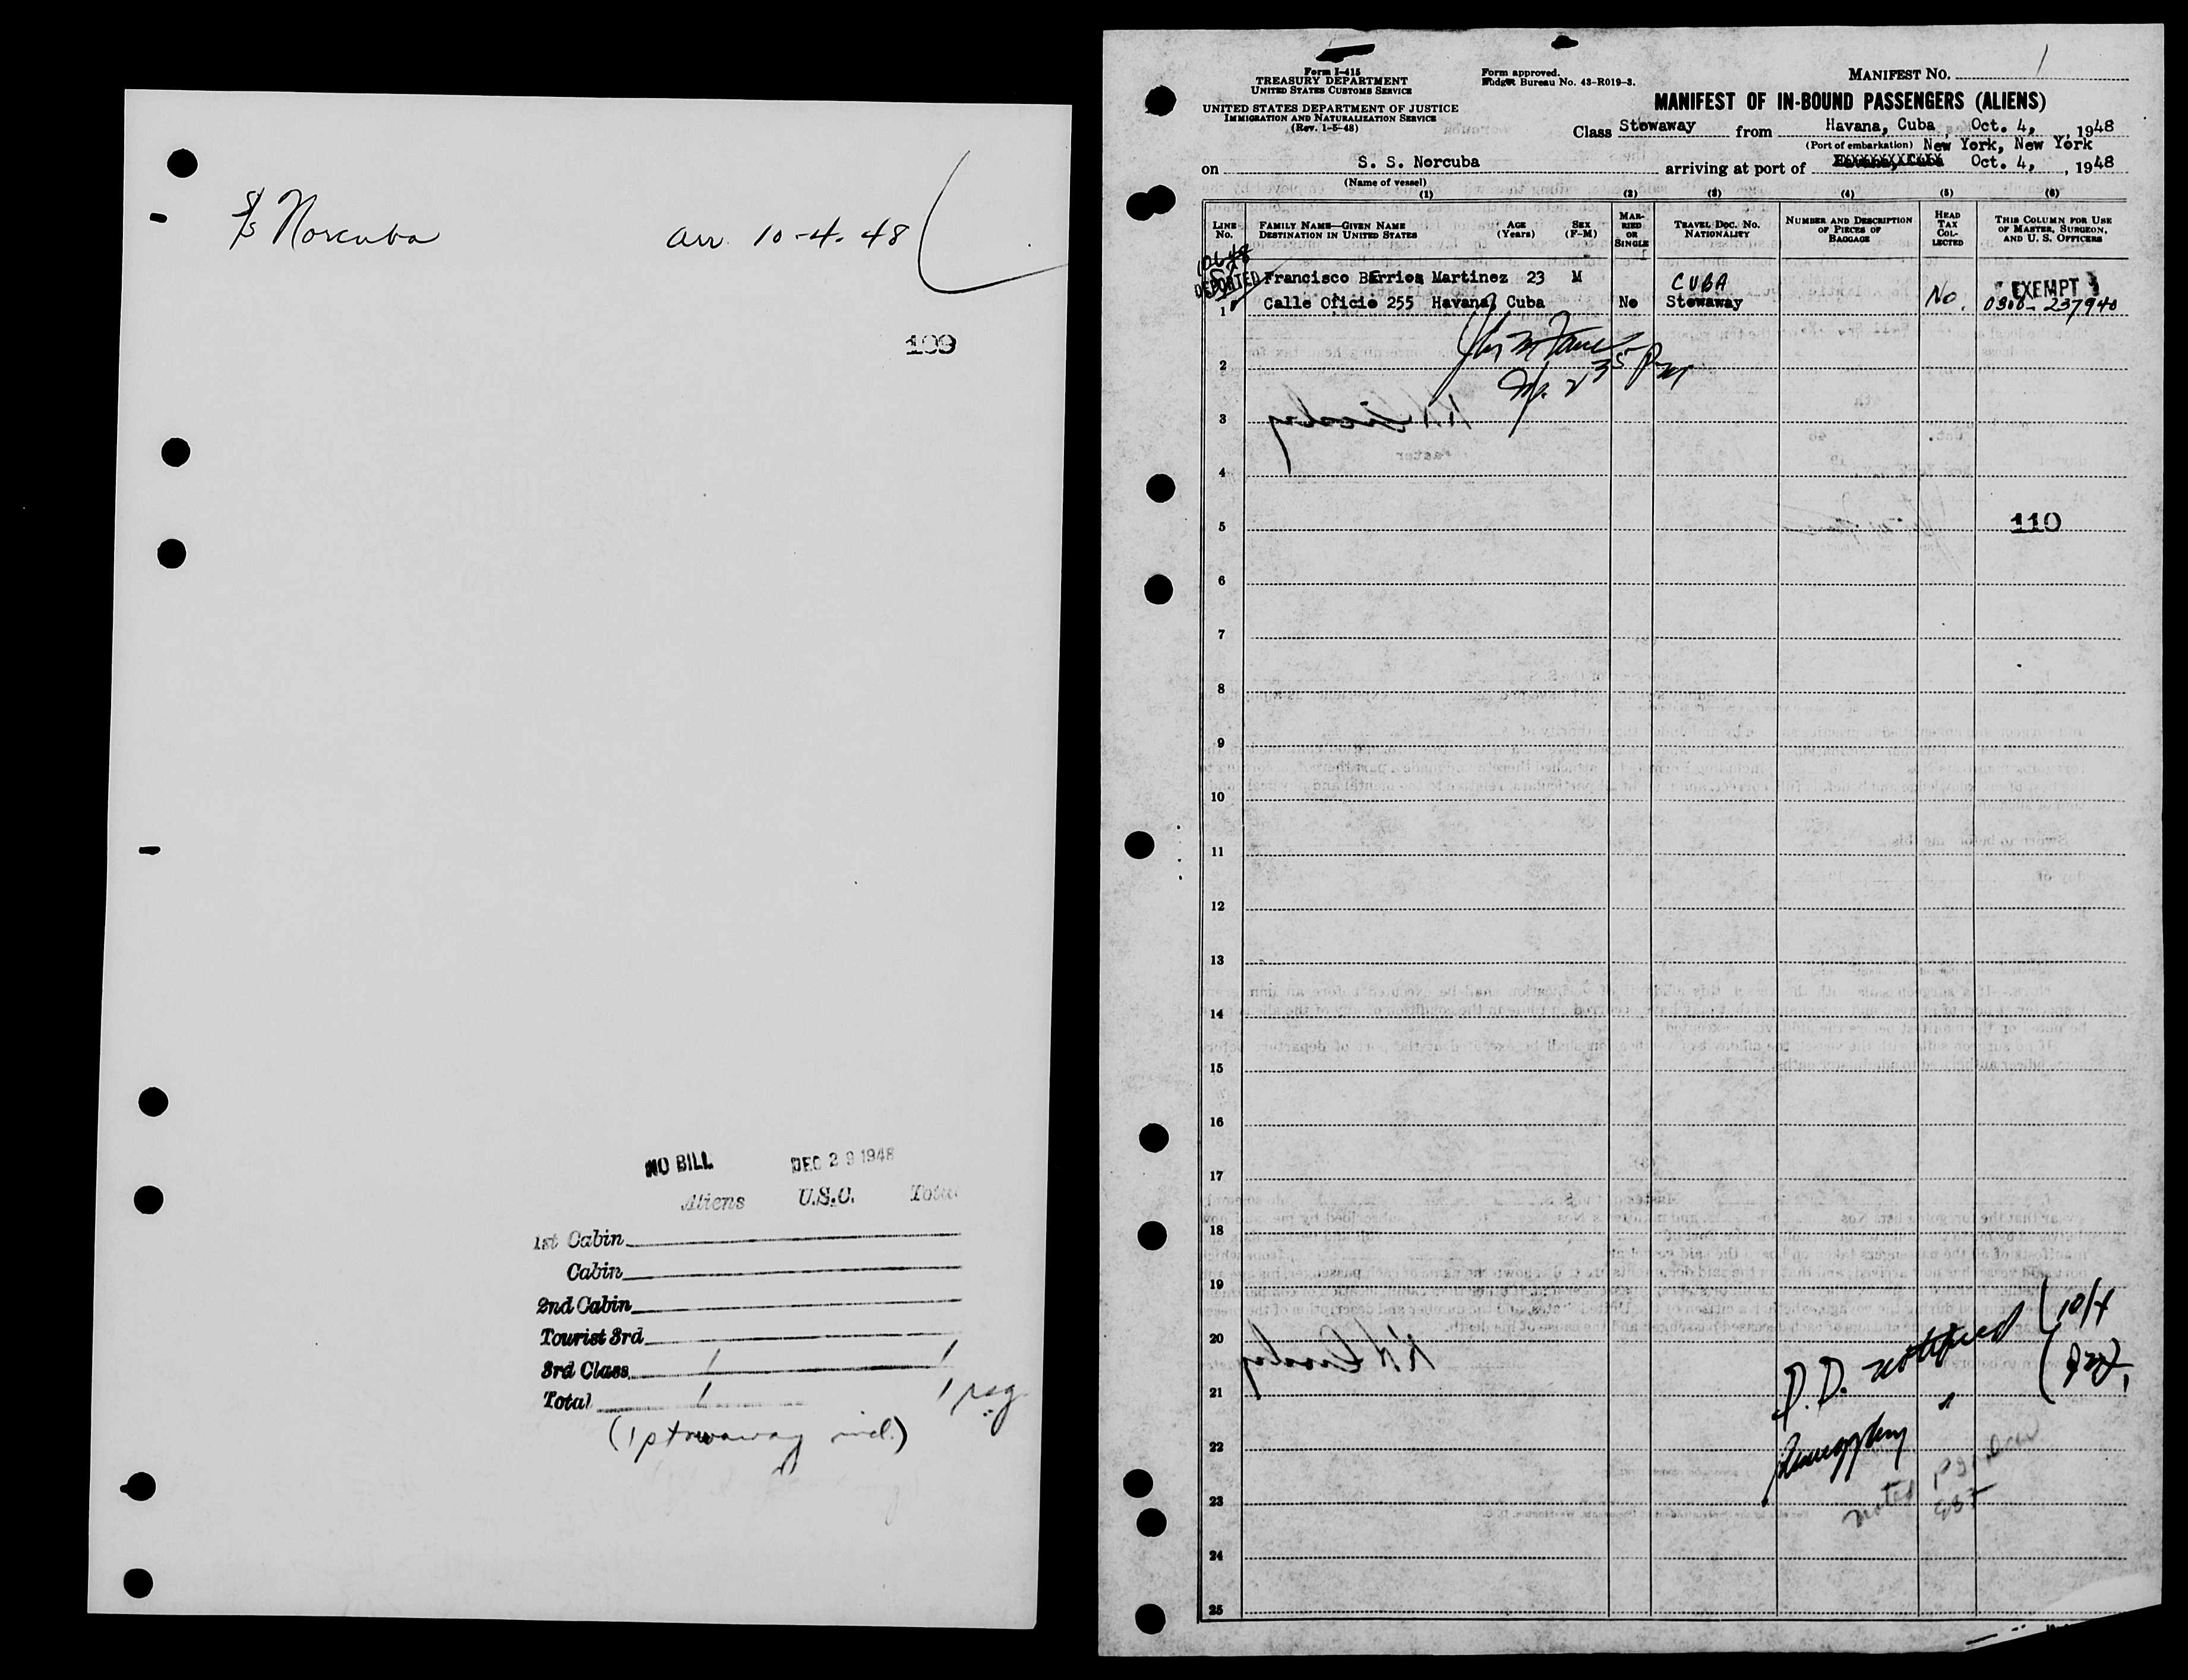 S/s Norcuba arr. 10-4-48
109
NO BILL DEC 29 1948
Aliens U.S.C. Total
1st Cabin
Cabin
2nd Cabin
Tourist 3rd
3rd Class 1 1
Total 1 1 psg
(1 stowaway incl.)
Form I-415
TREASURY DEPARTMENT
UNITED STATES CUSTOMS SERVICE
UNITED STATES DEPARTMENT OF JUSTICE
IMMIGRATION AND NATURALIZATION SERVICE
(Rev. 1-5-48)
Form approved.
Budget Bureau No. 43-R019-3.
MANIFEST NO. 1
MANIFEST OF IN-BOUND PASSENGERS (ALIENS)
Class Stowaway from Havana, Cuba, Oct. 4, 1948
(Port of embarkation) New York, New York
on S. S. Norcuba arriving at port of Havana, Cuba Oct. 4, 1948
(Name of vessel)
(1) (2) (3) (4) (5) (6)
LINE No. FAMILY NAME—GIVEN NAME DESTINATION IN UNITED STATES AGE (Years) SEX (F-M) MARRIED OR SINGLE TRAVEL DOC. NO. NATIONALITY NUMBER AND DESCRIPTION OF PIECES OF BAGGAGE HEAD TAX COLLECTED THIS COLUMN FOR USE OF MASTER, SURGEON, AND U. S. OFFICERS
DEPORTED Francisco Barrios Martinez 23 M CUBA EXEMPT
1 Calle Oficio 255 Havana, Cuba No Stowaway No. 0300-237940
2
3
4
5 110
6
7
8
9
10
11
12
13
14
15
16
17
18
19
20 P. D. notified 10/4
21 "
22
23 noted
24
25